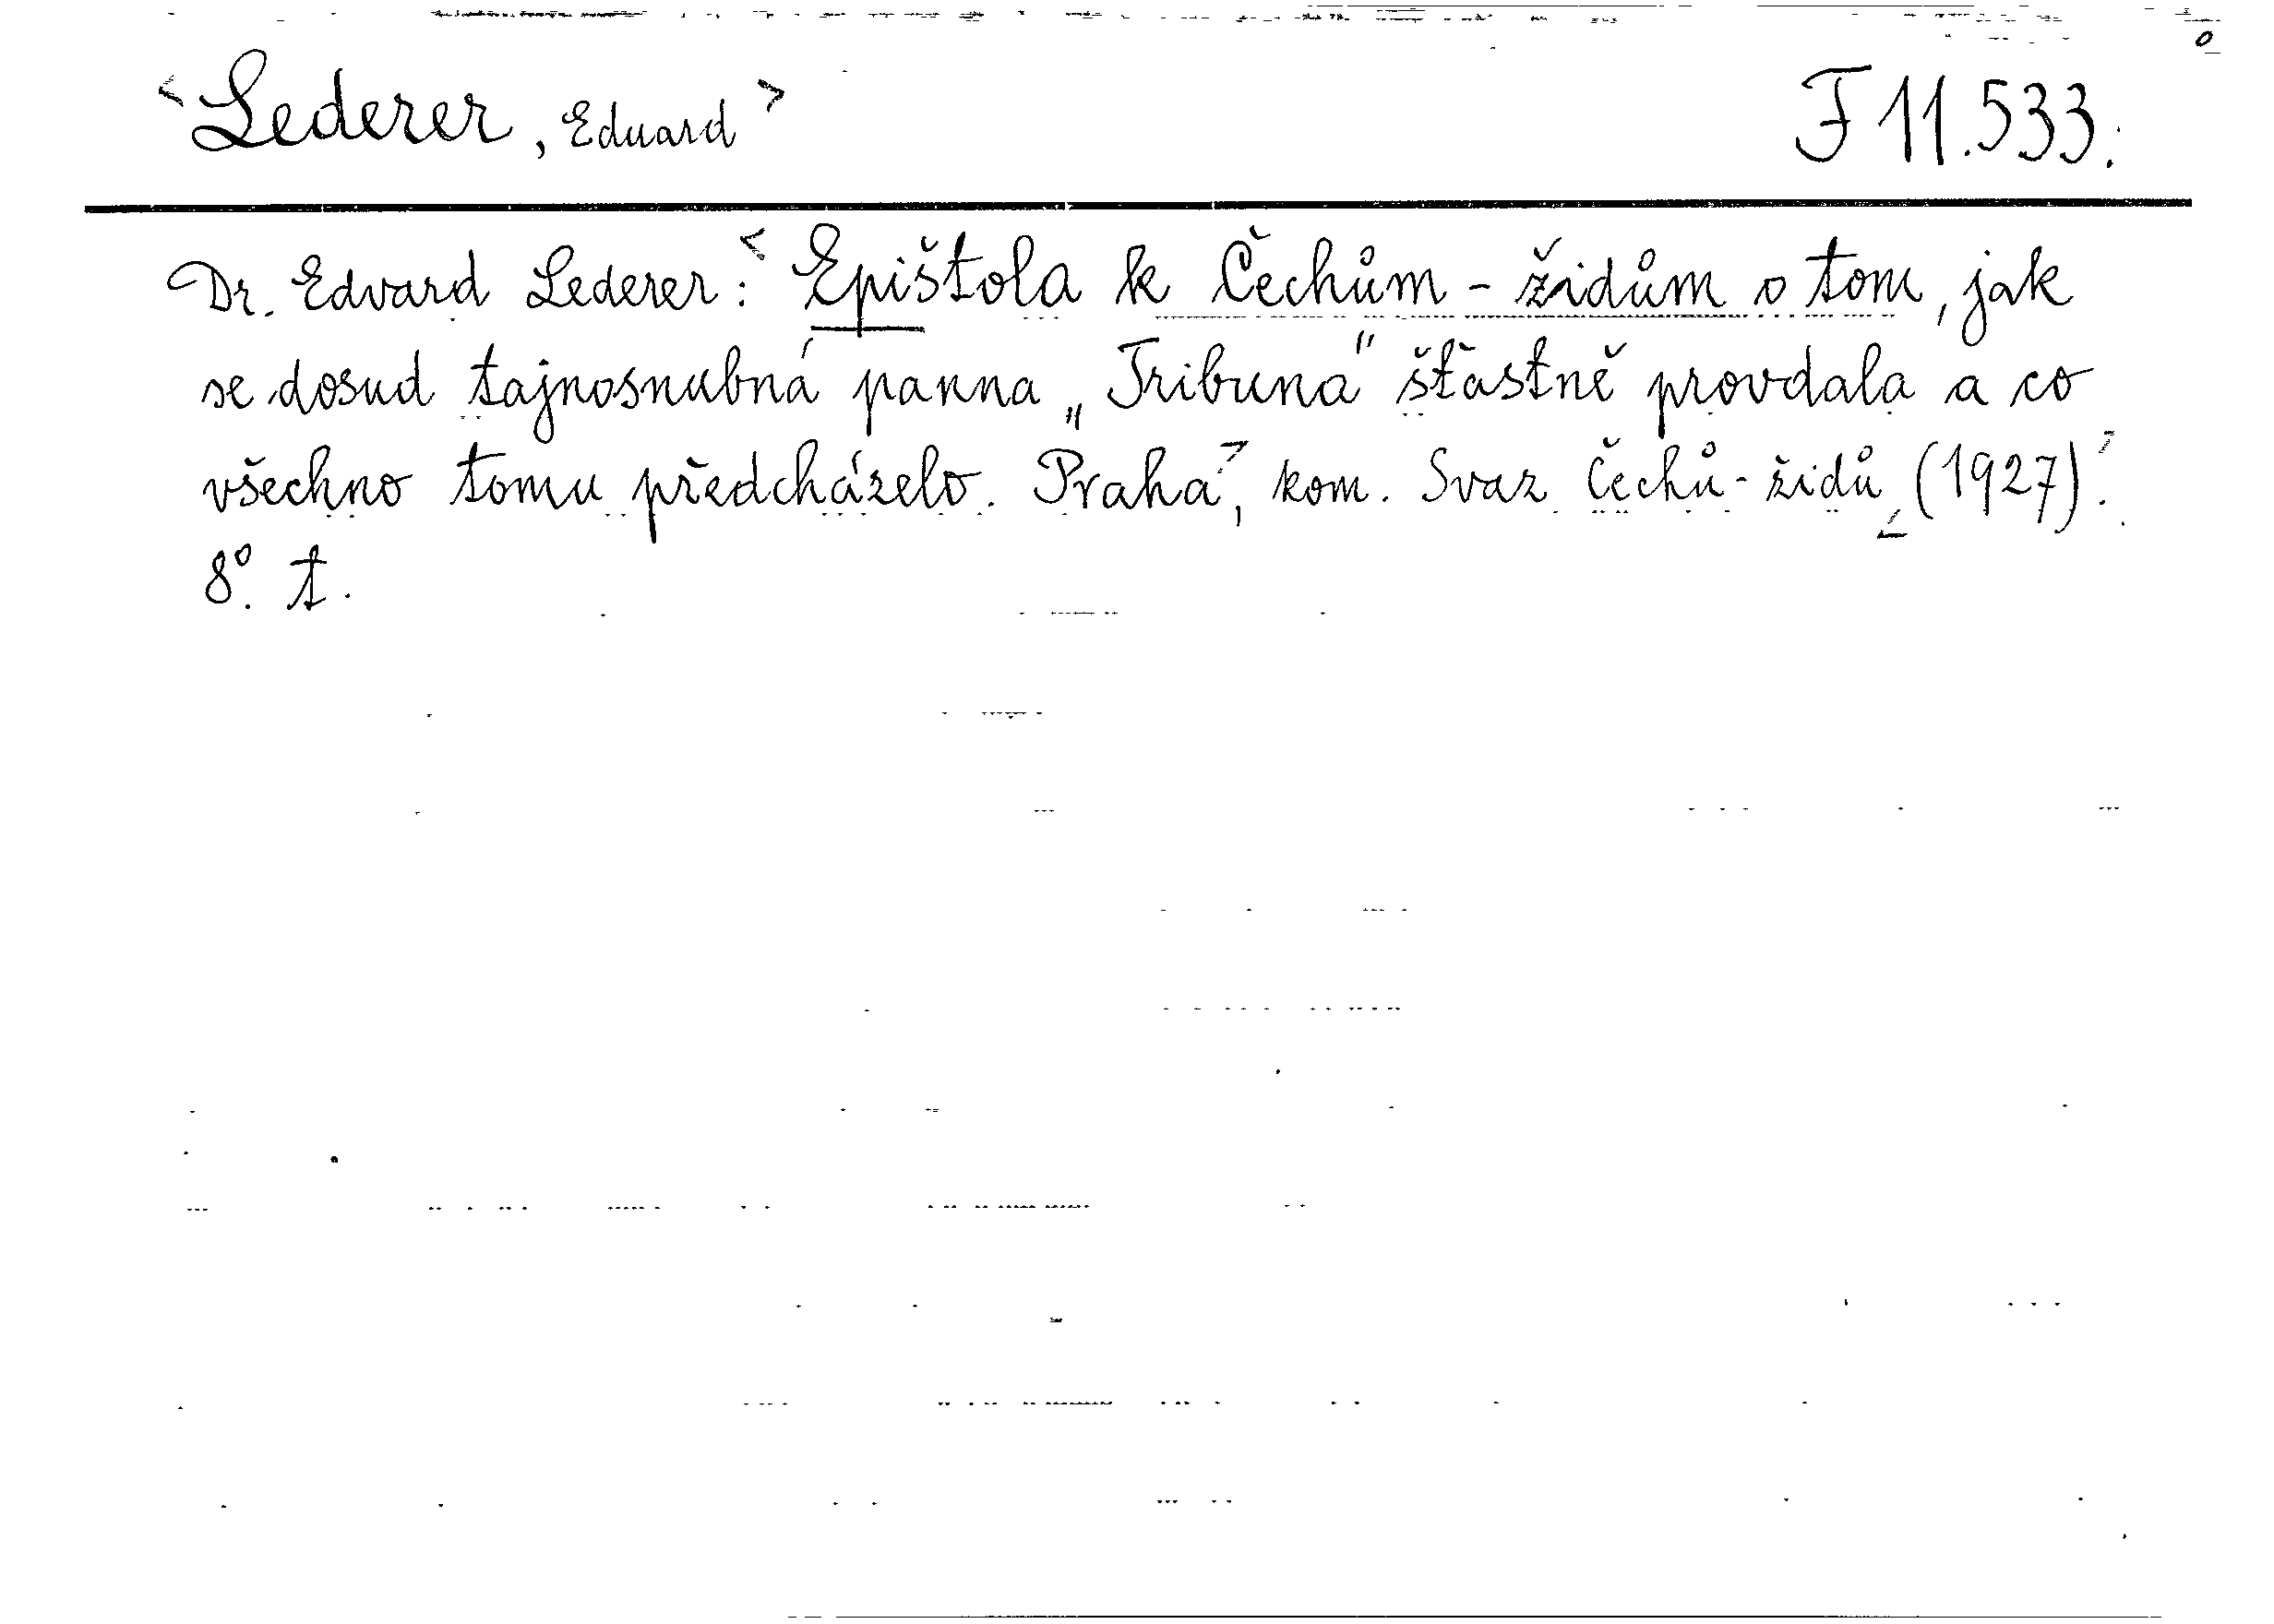 <Lederer, Eduard> F 11.533.
Dr. Edvard Lederer: <Epištola k Čechům - židům o tom, jak
se dosud tajnosnubná panna „Tribuna" šťastně provdala a co
všechno tomu předcházelo. Praha>, kom. Svaz Čechů - židů <(1927)>.
8°. t.